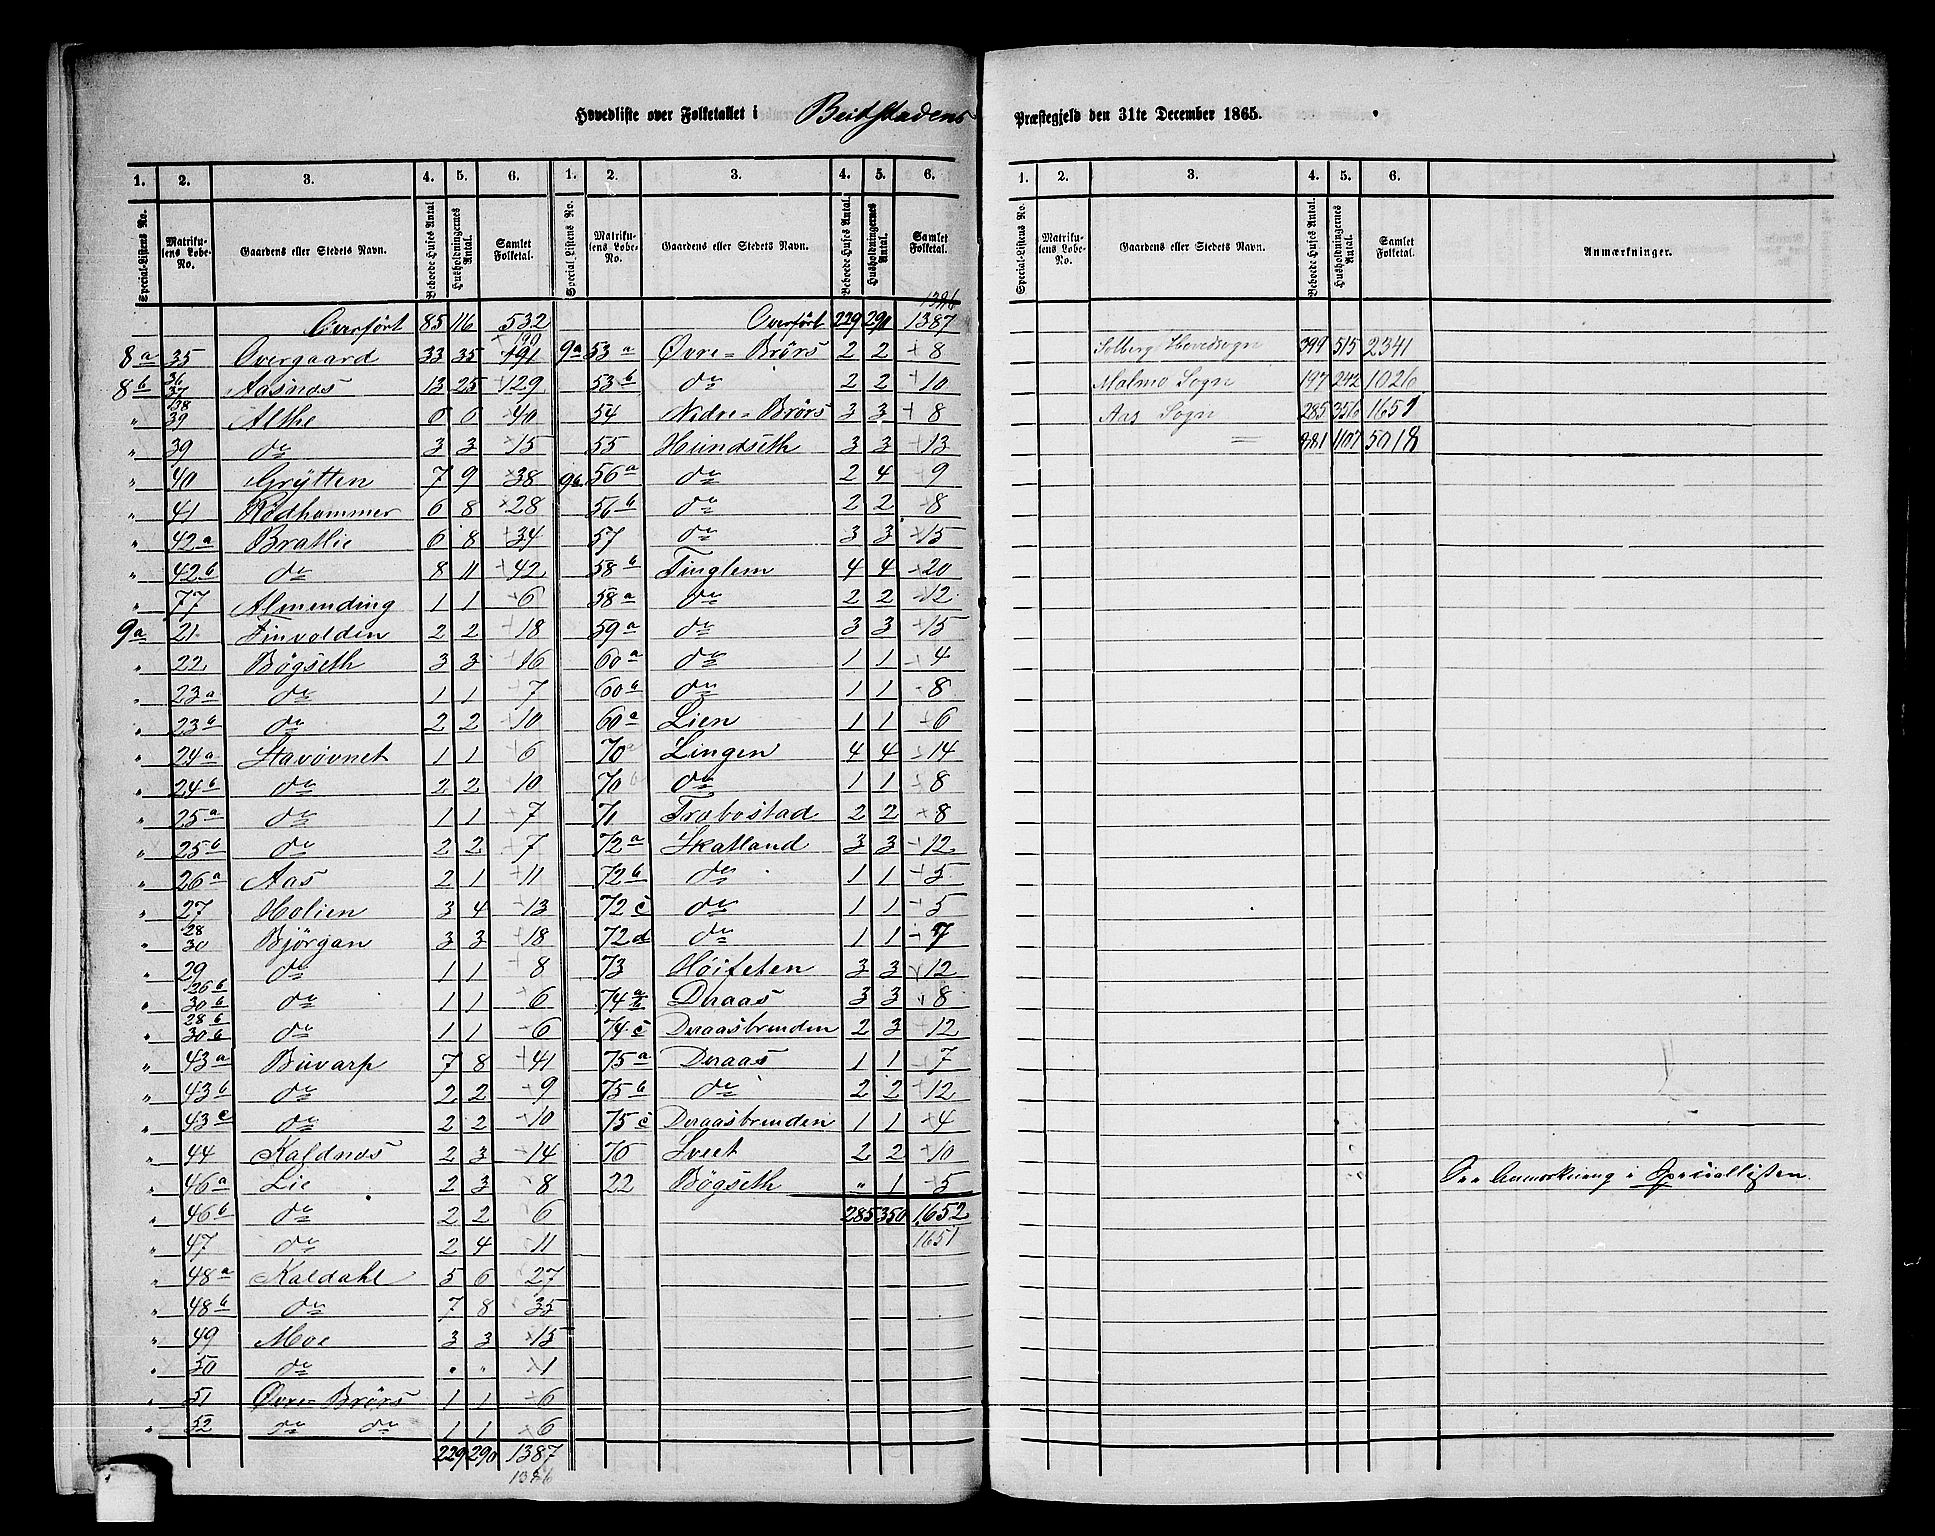 Hovedliste over Folketallet i Beitstadens Præstegjeld den 31te December 1865.
1. 2. 3. 4. 5. 6. 1. 2. 3. 4. 5. 6.
Special-Listens No. Matrikulens Løbe-No. Gaardens eller Stedets Navn. Beboede Huses Antal Husholdningernes Antal. Samlet Folketal. Special Listens No. Matrikulens Løbe-No. Gaardens eller Stedets Navn. Beboede Huses Antal. Husholdningernes Antal. Samlet Folketal.
Overført 85 116 532
8a 35 Overgaard 33 35 191 190
8b 36 37 Aasnæs 13 25 129
" 38 39 Althe 6 6 40
" 39 do 3 3 15
" 40 Grÿtten 7 9 38
" 41 Rödhammer 6 8 28
" 42a Bratlie 6 8 34
" 42b do 8 11 42
" 77 Almending 1 1 6
9a 21 Finvolden 2 2 18
" 22 Bøgseth 3 3 16
" 23a do 1 1 7
" 23b do 2 2 10
" 24a Stavøvnet 1 1 6
" 24b do 2 2 10
" 25a do 1 1 7
" 25b do 2 2 7
" 26a Aas 2 1 11
" 27 Holien 3 4 13
" 28 30 Bjørgan 3 3 18
" 29 do 1 1 8
" 26b 30b do 1 1 6
" 28b 30b do 1 1 6
" 43a Buvarp 7 8 41
" 43b do 2 2 9
" 43c do 2 2 10
" 44 Kaldnæs 2 3 14
" 46a Lie 2 3 8
" 46b do 2 2 6
" 47 do 2 4 11
" 48a Kaldahl 5 6 27
" 48b do 7 8 35
" 49 Moe 3 3 15
" 50 do " " 1
" 51 Øvre=Brørs 1 1 6
" 52 do do 1 1 6
229 290 1387
1386
1386
Overført 229 290 1387
9a 53a Øvre=Brørs 2 2 8
53b do 2 2 10
54 Nedre=Brørs 3 3 8
55 Hundseth 3 3 13
9b 56a do 2 4 9
56b do 2 2 8
57 do 3 3 15
58b Tinglem 4 4 20
58a do 2 2 12
59a do 3 3 15
60a do 1 1 4
60b do 1 1 8
60a Lien 1 1 6
70a Lingen 4 4 14
70b do 1 1 8
71 Træbostad 2 2 8
72a Skatland 3 3 12
72b do 1 1 5
72c do 1 1 5
72d do 1 1 7
73 Høiteten 3 3 12
74a b Draas 3 3 8
74c Deraasbrenden 2 3 12
75a Deraas 1 1 7
75b do 2 2 12
75c Deraasbrenden 1 1 4
76 Sveet 2 2 10
22 Bøgseth " 1 5
285 350 1652
1651
1. 2. 3. 4. 5. 6.
Special-Listens No. Matrikulens Løbe-No. Gaardens eller Stedets Navn. Beboede Huses Antal. Husholdningernes Antal. Samlet Folketal. Anmærkninger.
Solberg Hovedsogn 399 515 2341
Malmo Sogn 197 242 1026
Aas Sogn 285 350 1651
881 1107 5018
See Anmærkning i Speciallisten.